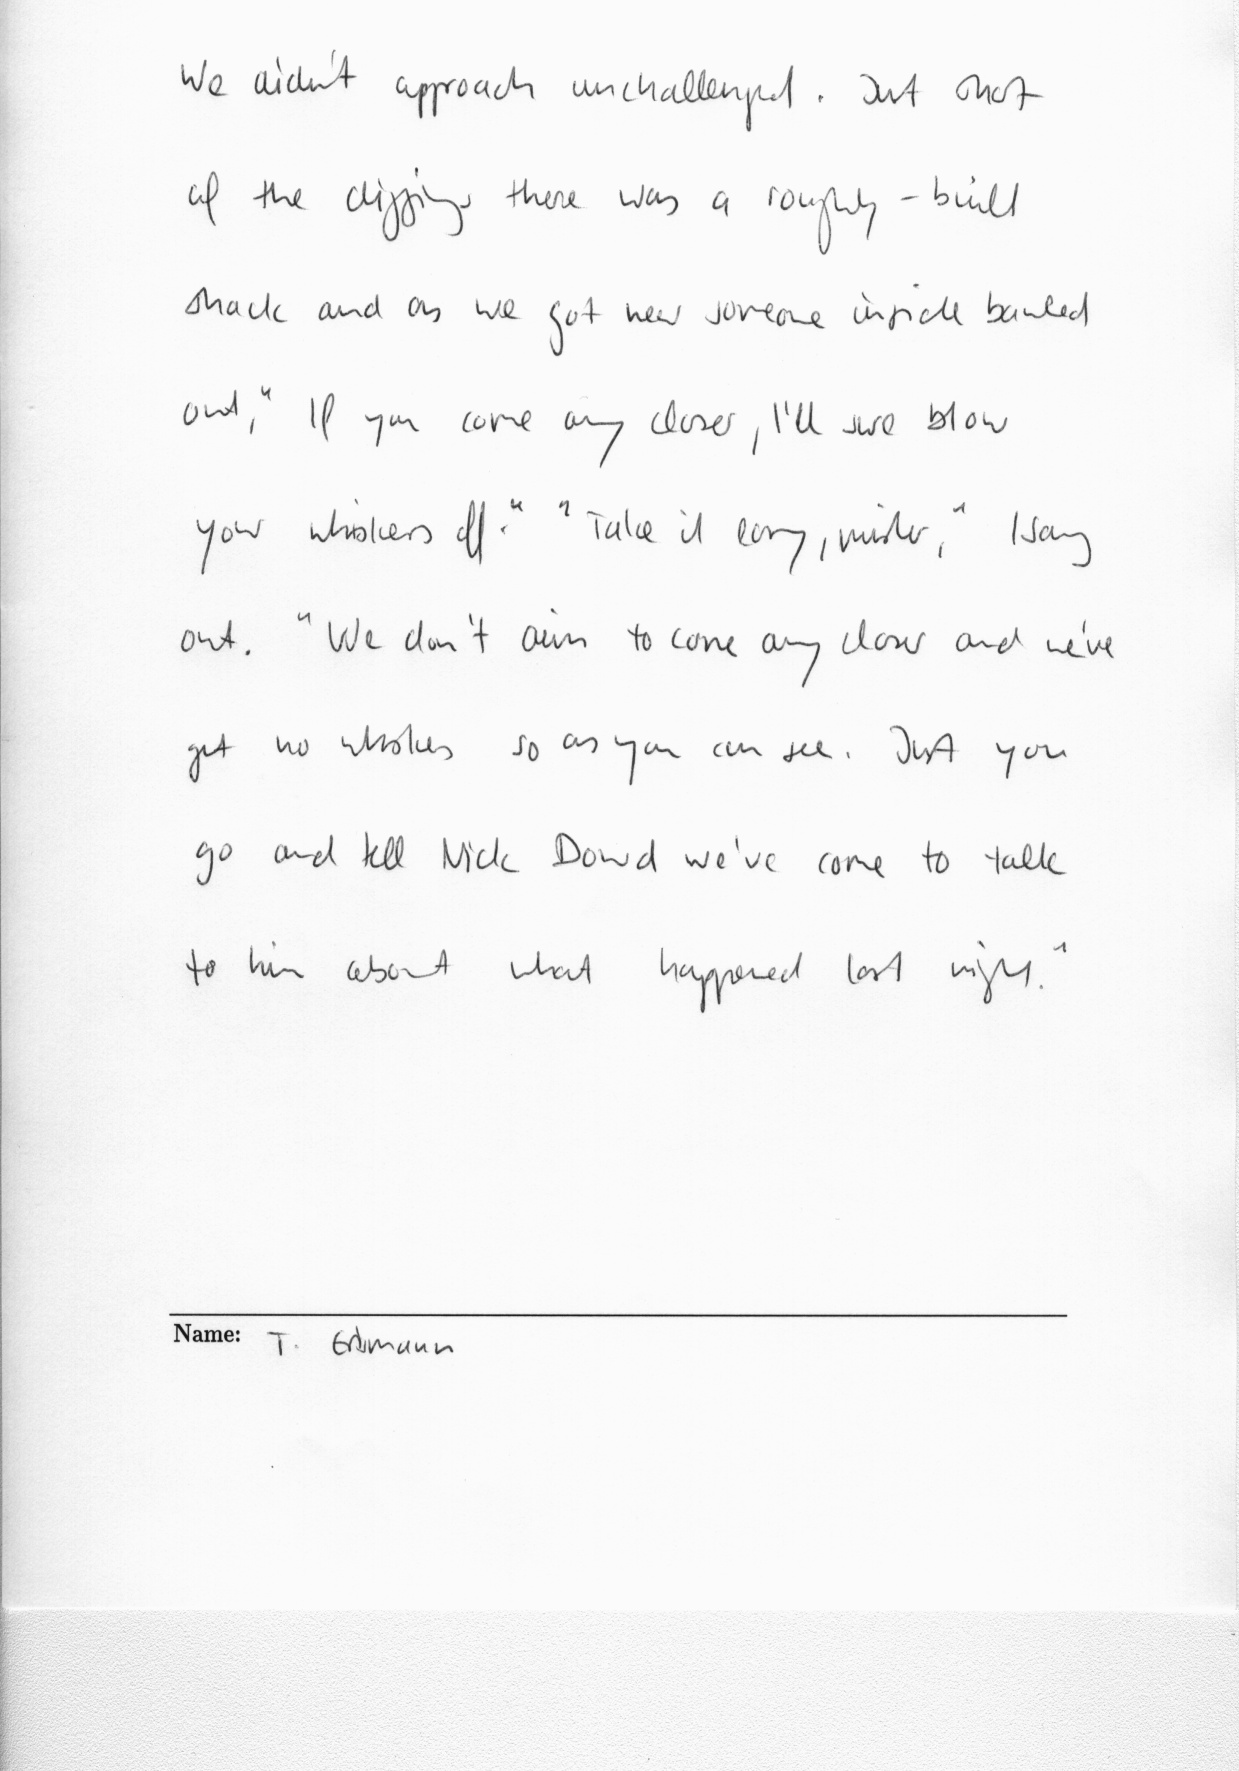 We didn't approach unchallenged. Just short
of the diggings there was a roughly-built
shack and as we got near someone inside bawled
out, "If you come any closer, I'll sure blow
your whiskers off." "Take it easy, mister," I sang
out. "We don't aim to come any closer and we've
get no whiskers so as you can see. Just you
go and tell Nick Dowd we've come to talk
to him about what happened last night."
Name: T. Erdmann